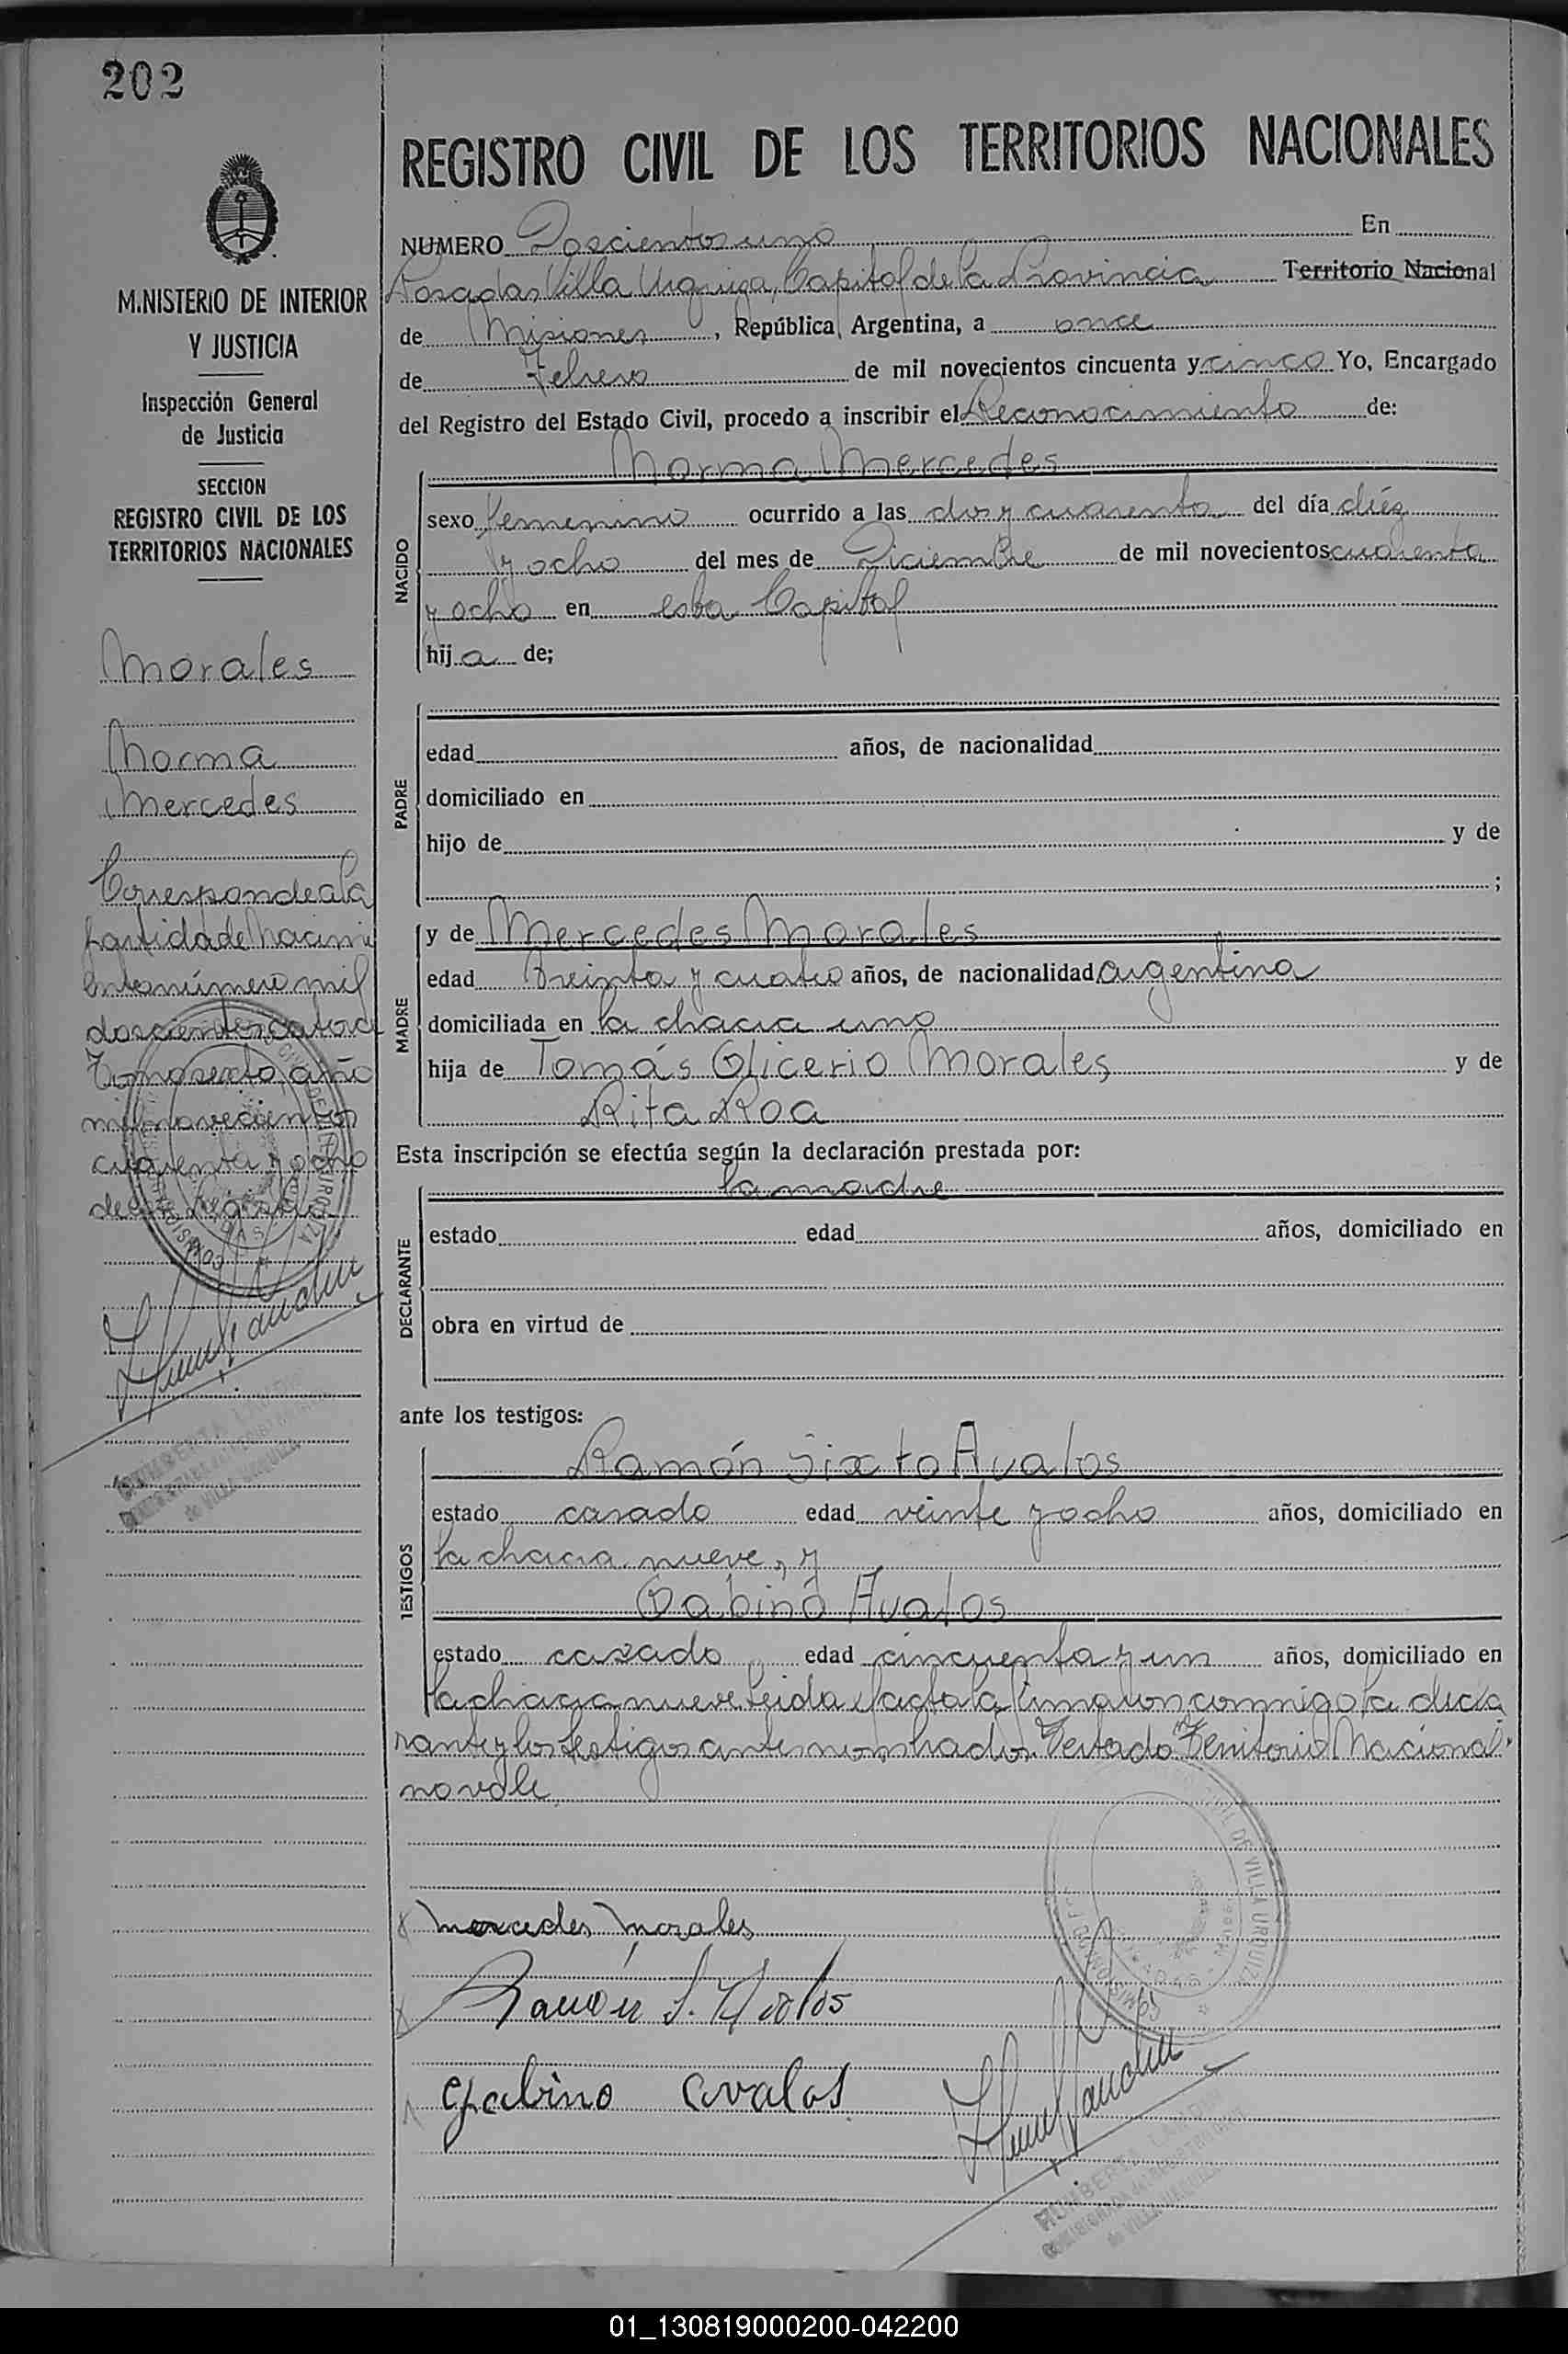 202
MINISTERIO DE INTERIOR
Y JUSTICIA
Inspección General
de Justicia
SECCION
REGISTRO CIVIL DE LOS
TERRITORIOS NACIONALES
Morales
Norma
Mercedes
Corresponde a la
partida de Nacimi
ento número mil
doscientos catorce
Tomo sexto, año
mil novecientos
cuarenta y ocho
de este registro
REGISTRO CIVIL DE LOS TERRITORIOS NACIONALES
NUMERO Doscientos uno En
Posadas, Villa Urquiza, Capital de la Provincia Territorio Nacional
de Misiones, República Argentina, a once
de Febrero de mil novecientos cincuenta y cinco Yo, Encargado
del Registro del Estado Civil, procedo a inscribir el Reconocimiento de:
NACIDO
Norma Mercedes
sexo femenino ocurrido a las dos y cuarenta del día diéz
y ocho del mes de Diciembre de mil novecientos cuarenta
y ocho en esta Capital
hija de;
PADRE
edad años, de nacionalidad
domiciliado en
hijo de y de
;
MADRE
y de Mercedes Morales
edad treinta y cuatro años, de nacionalidad argentina
domiciliada en la chacra uno
hija de Tomás Glicerio Morales y de
Rita Roa
Esta inscripción se efectúa según la declaración prestada por:
DECLARANTE
la madre
estado edad años, domiciliado en
obra en virtud de
ante los testigos:
TESTIGOS
Ramón Sixto Avalos
estado casado edad veinte y ocho años, domiciliado en
la chacra nueve, y
Gabino Avalos
estado casado edad cincuenta y un años, domiciliado en
la chacra nueve. Leida el acta la firmaron conmigo la decla
rante y los testigos antes nombrados. Testado "Territorio Nacional"
no vale
Mercedes Morales
Ramón S. Avalos
Gabino Avalos
01_130819000200-042200